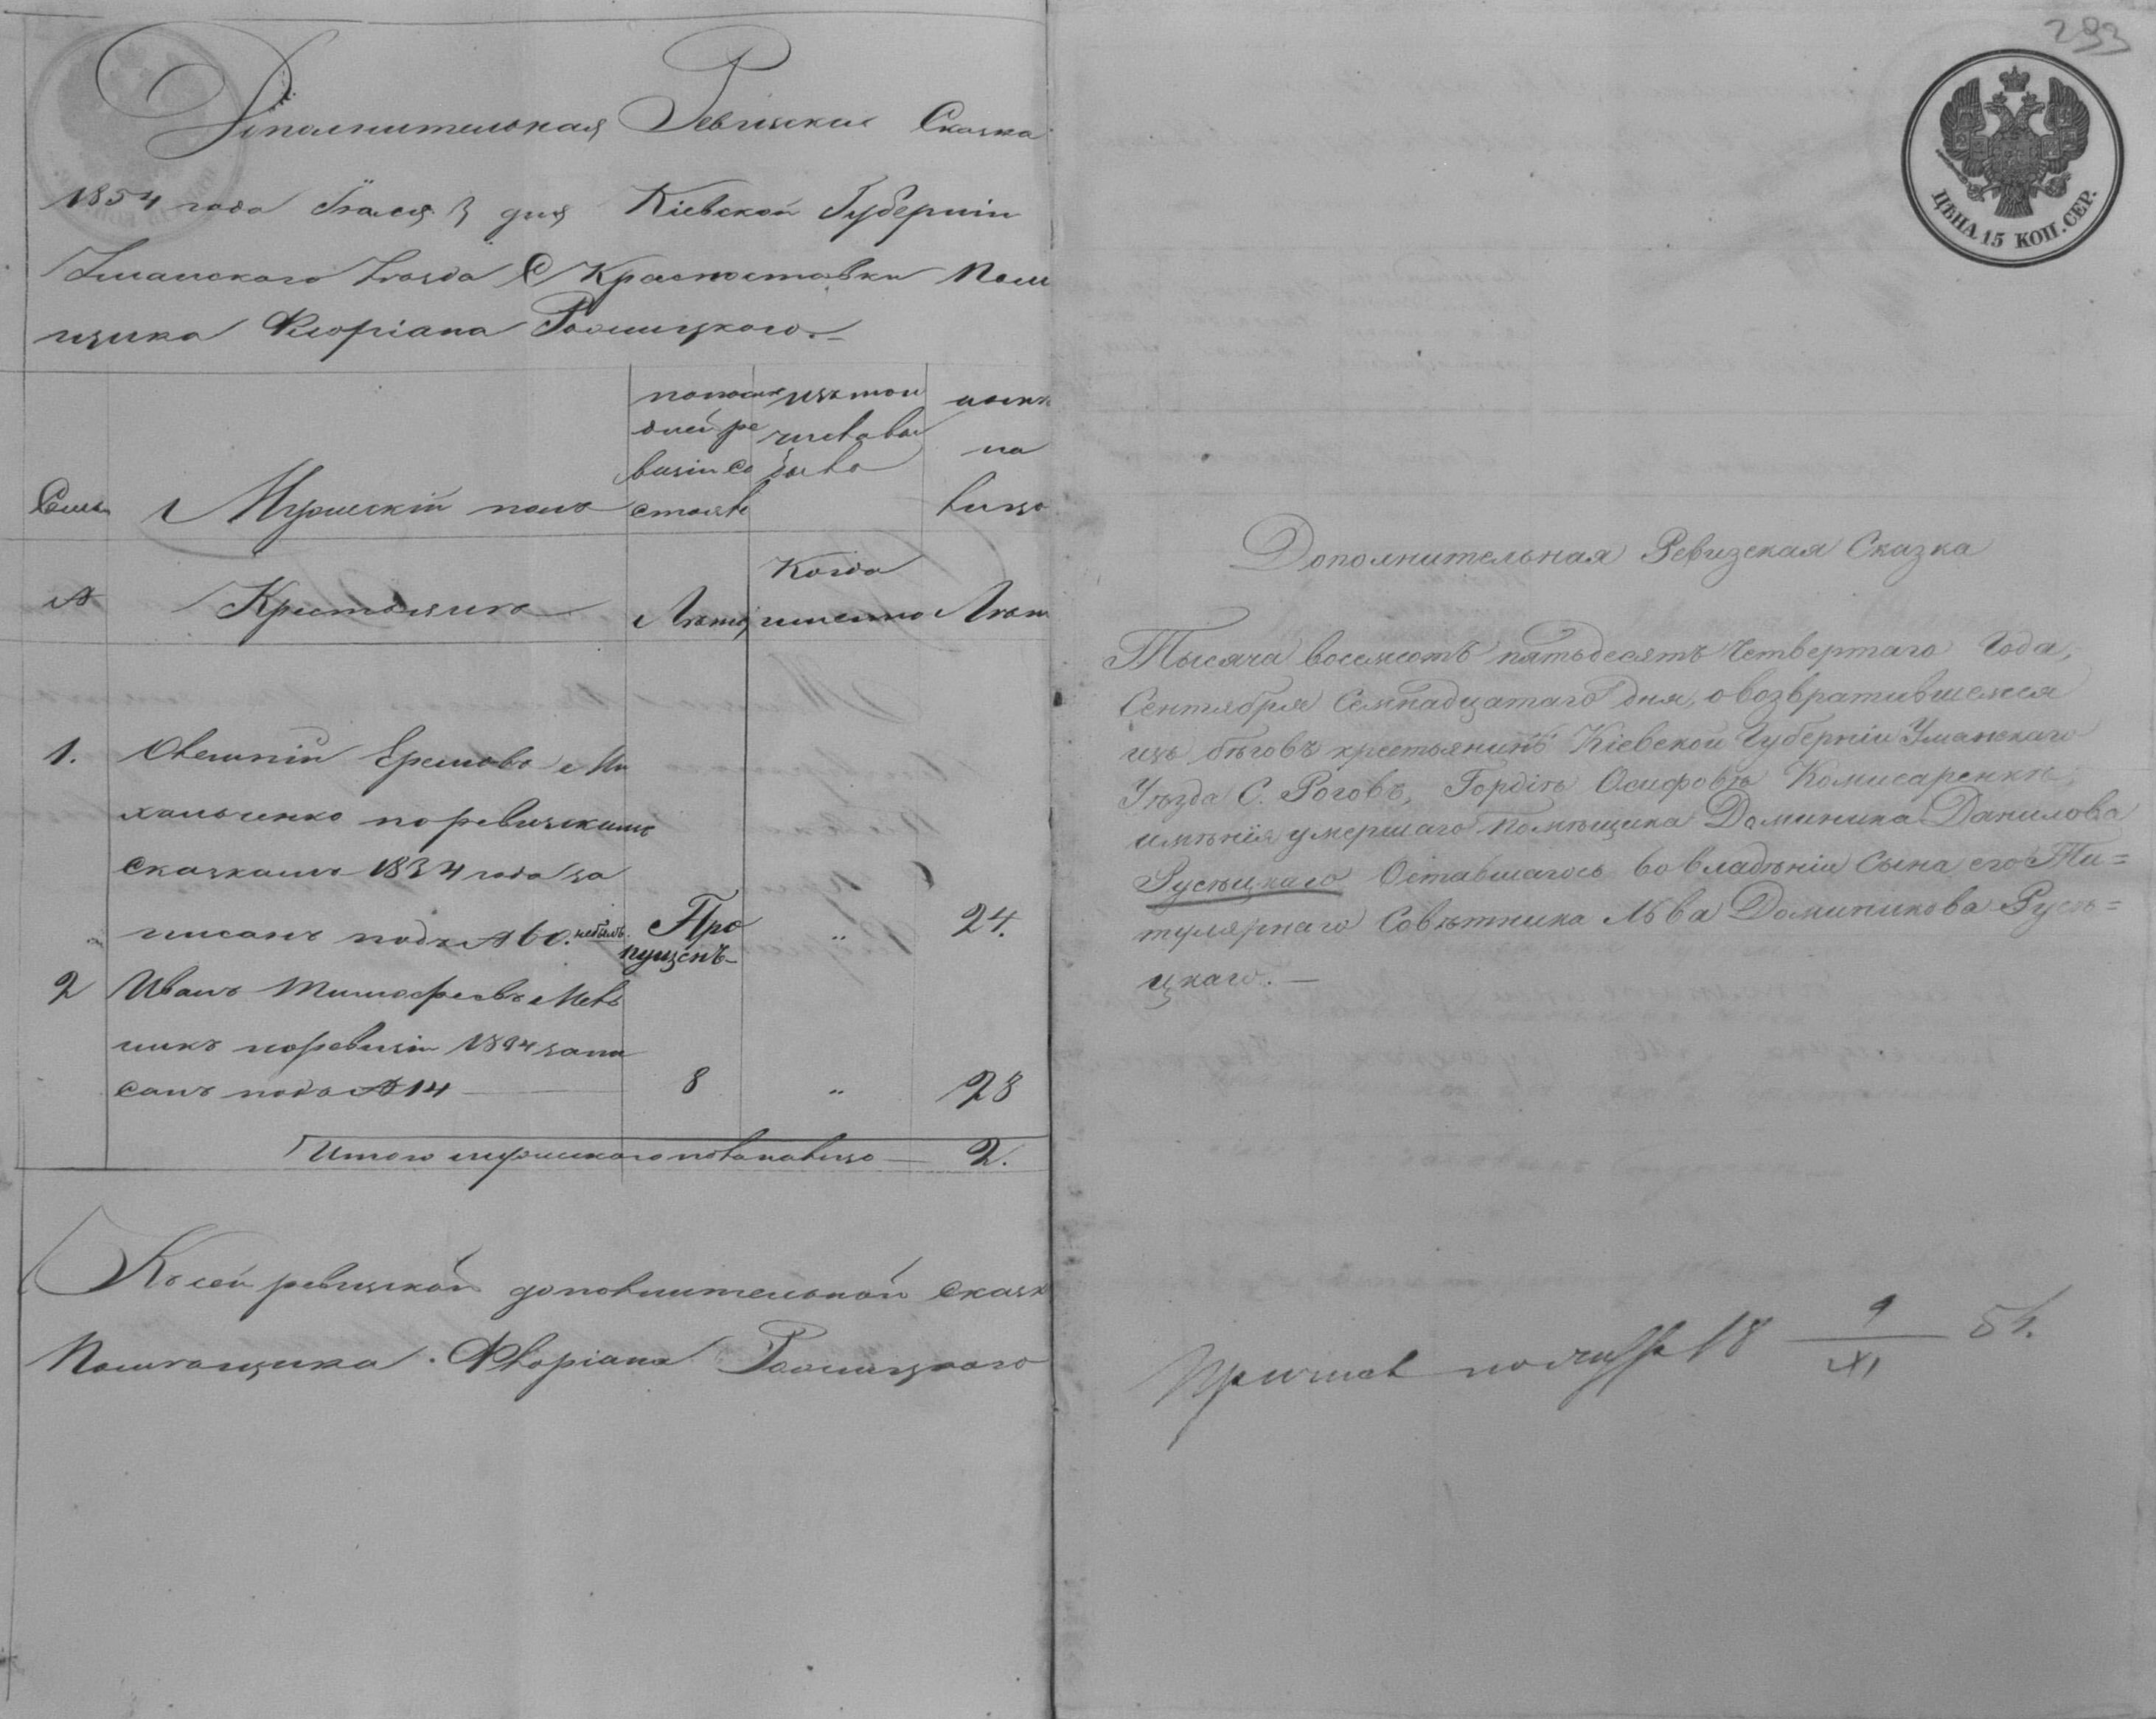 Дополнительная Ревизская Сказка
1854 года Маія 3 дня Кіевской Губерніи
Уманского Уезда С Краснотавки Поме
щика Флоріана Росищкого
попослѣ изътого нынѣ
дней ре числавы на
визіи со было лицо
Семьи Мужескій полъ стоялъ
№ Крестьянъ Лѣта Когда именно Лѣта
1. Евстафій Еремѣевъ Ми
хальченко поревизскимъ
сказкамъ 1834 года за
писанъ подъ № 60. небылъ. Про „ 24.
пущенъ
2 Иванъ Тимофеевъ Мель
никъ поревизіи 1834 запи
санъ подъ № 14 8 „ 28
Итого мужескаго пола налицо 2.
Къ сей ревизской дополнительной сказк
Помѣщика Флоріана
293
ЦѢНА 15 КОП. СЕР.
Дополнительная Ревизская Сказка
Тысяча восемьсотъ пятьдесятъ четвертаго Года,
Сентября Семнадцатаго дня, о возвратившемся
изъ бѣговъ крестьянинѣ Кіевской Губерніи Уманскаго
Уѣзда С. Роговъ, Гордѣѣ Осифовѣ Комисаренкѣ,
имѣнія умершаго помѣщика Доминика Данилова
Русѣцкаго Оставшагось во владѣніи Сына его Ти=
тулярнаго Совѣтника Льва Доминикова Русѣ=
цкаго. —
18 9/XI 54.